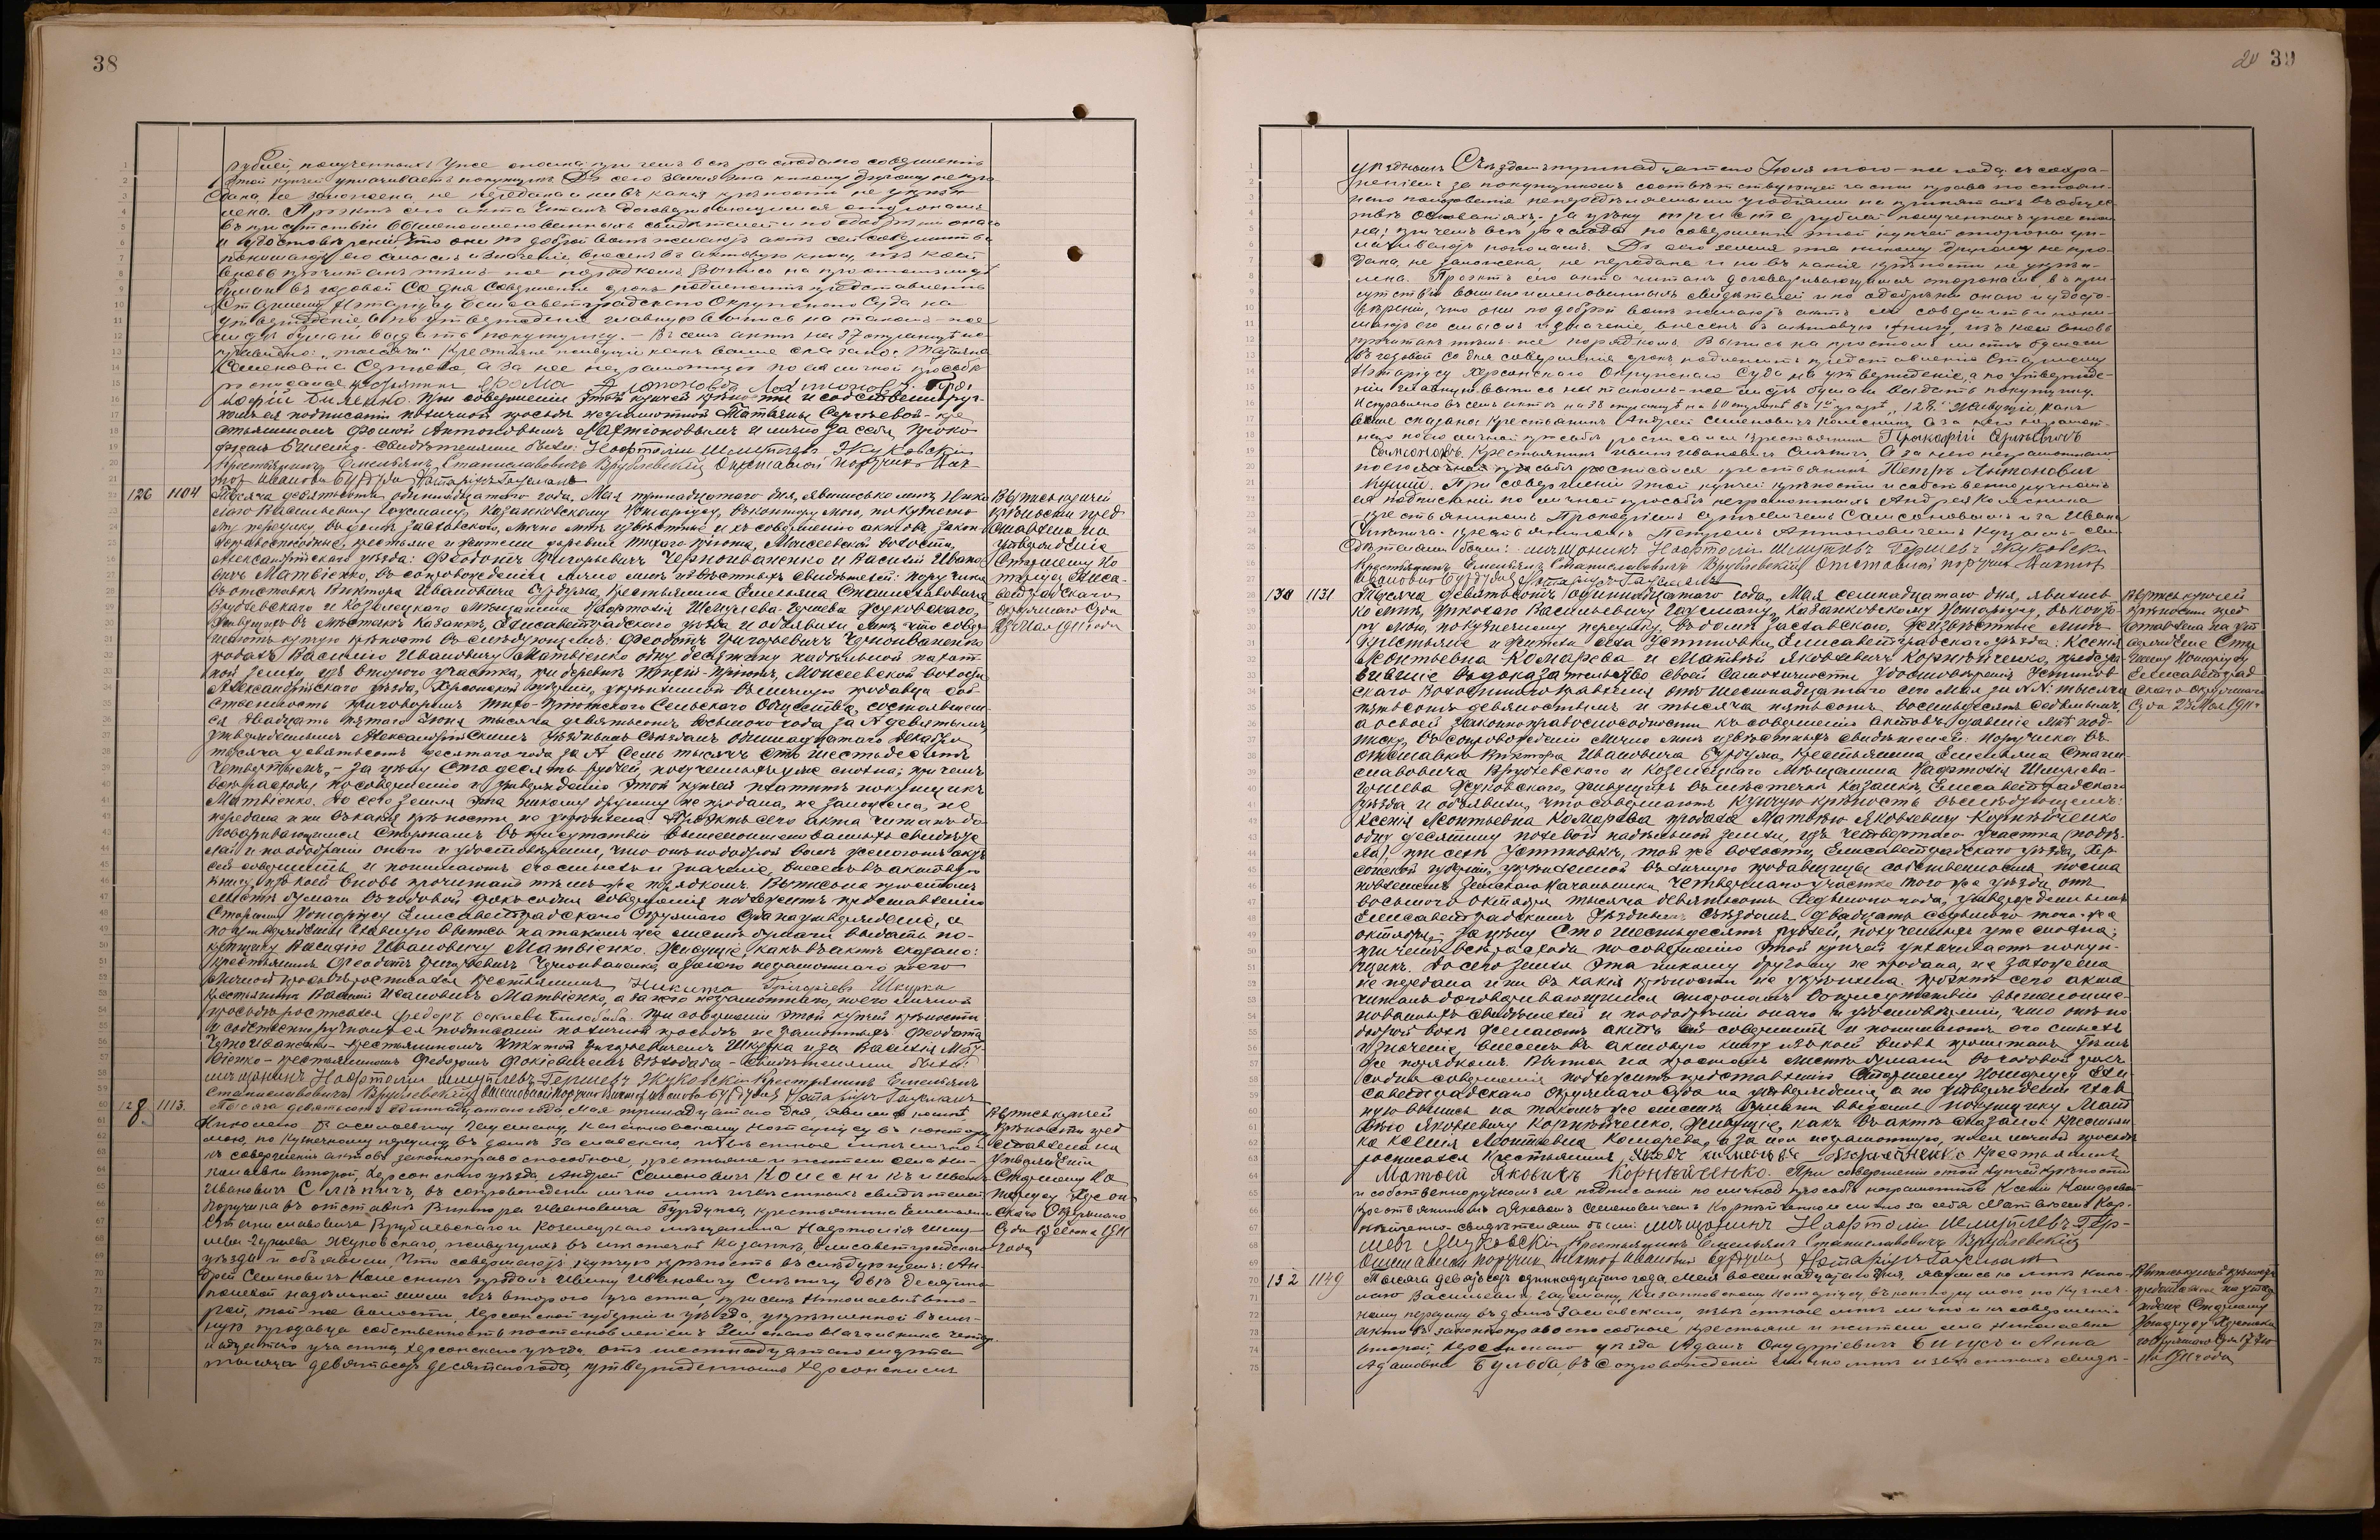 38
рублей, полученныхъ уже сполна; при чемъ всѣ расходы по совершенію
этой купчей уплачиваетъ покупщикъ. До сего земля эта никому другому не про
дана, не заложена, не передана и ни въ какія крѣпости не укрѣп
лена. Проэктъ сего акта читанъ договаривающимся сторонамъ
въ присутствіи вышепоименованныхъ свидѣтелей и по одобреніи онаго
и удостовѣреніи, что они по доброй волѣ желаютъ актъ сей совершить и
понимаютъ его смыслъ и значеніе, внесенъ въ актовую книгу, изъ коей
вновь прочитанъ тѣмъ-же порядкомъ. Выпись на простомъ листѣ
бумаги въ годовой со дня совершенія срокъ подлежитъ представленію
Старшему Нотаріусу Елисаветградскаго Окружнаго Суда на
утвержденіе, а по утвержденіи главную выпись на такомъ-же
листѣ бумаги выдать покупщику. - Въ семъ актѣ на 37 страницѣ
Семеновна Сергѣева, а за нее неграмотную по ея личной просьбѣ
росписался крестьянинъ Фома Антоновъ Мартыновъ. Про-
кофій Биленко. При совершеніи этой купчей крѣпости и собственноруч-
номъ ея подписаніи по личной просьбѣ неграмотной Татьяны Сергѣевой - кре
стьяниномъ Фомой Антоновымъ Мартыновымъ и лично за себя Проко-
фіемъ Биленко - свидѣтелями были: Нафтоли Шмулевъ Жуковскій
Крестьянинъ Емельянъ Станиславовичъ Врублевскій Отставной поручикъ Вик-
торъ Ивановъ Бурдуля Нотаріусъ Гаусманъ
126 1104 Тысяча девятьсотъ одиннадцатаго года, Мая тринадцатаго дня, явились ко мнѣ, Нико
лаю Васильевичу Гаусману, Казанковскому Нотаріусу, въ контору мою, по Кузнечно
му переулку, въ домѣ Заславскаго, лично мнѣ извѣстные и къ совершенію актовъ закон
ноправоспособные, крестьяне и жители деревни Тихаго-Пріюта, Моисеевской волости,
Александрійскаго уѣзда: Феодотъ Григорьевичъ Черноиваненко и Василій Ивано
вичъ Матвіенко, въ сопровожденіи лично мнѣ извѣстныхъ свидѣтелей: поручика
въ отставкѣ Виктора Ивановича Бурдуля, крестьянина Емельяна Станиславовича
Врублевскаго и Козелецкаго мѣщанина Нафтолія Шмулева-Гершева Жуковскаго,
живущихъ въ мѣстечкѣ Казанкѣ, Елисаветградскаго уѣзда и объявили мнѣ, что совер
шаютъ купчую крѣпость въ слѣдующемъ: Феодотъ Григорьевичъ Черноиваненко
продалъ Василію Ивановичу Матвіенко одну десятину надѣльной пахат
ной земли, изъ второго участка, при деревнѣ Тихій-Пріютъ, Моисеевской волости
Александрійскаго уѣзда, Херсонской губерніи, укрѣпленной въ личную продавца соб
ственность приговоромъ Тихо-Пріютскаго Сельскаго Общества, состоявшим
ся двадцать пятаго Іюня тысяча девятьсотъ восьмого года за № девятымъ,
утвержденнымъ Александрійскимъ Уѣзднымъ Съѣздомъ одиннадцатаго декабря
тысяча девятьсотъ десятаго года за № семь тысячъ сто шестьдесятъ
четвертымъ, - за цѣну Сто десять рублей, полученныхъ уже сполна; при чемъ
всѣ расходы по совершенію и утвержденію этой купчей платитъ покупщикъ
Матвіенко. До сего земля эта никому другому не продана, не заложена, не
передана и ни въ какія крѣпости не укрѣплена. Проэктъ сего акта читанъ до
говаривающимся сторонамъ въ присутствіи вышепоименованныхъ свидѣте
лей и по одобреніи онаго и удостовѣреніи, что они по доброй волѣ желаютъ актъ
сей совершить и понимаютъ его смыслъ и значеніе, внесенъ въ актовую
книгу, изъ коей вновь прочитанъ тѣмъ-же порядкомъ. Выпись на простомъ
листѣ бумаги въ годовой срокъ со дня совершенія подлежитъ представленію
Старшему Нотаріусу Елисаветградскаго Окружнаго Суда на утвержденіе, а
по утвержденіи главную выпись на такомъ же листѣ бумаги выдать по-
купщику Василію Ивановичу Матвіенко. Живущіе, какъ въ актѣ сказано:
крестьянинъ Феодотъ Григорьевичъ Черноиваненко, а за него неграмотнаго по его
личной просьбѣ росписался крестьянинъ Никита Григорьевъ Шкурка
Крестьянинъ Василій Ивановичъ Матвіенко, а за него неграмотнаго, по его личной
просьбѣ росписался Федоръ Фокіевъ Билобаба. При совершеніи этой купчей крѣпости
и собственноручномъ ея подписаніи по личной просьбѣ неграмотныхъ Феодота
Черноиваненко - крестьяниномъ Никитой Григорьевичемъ Шкурка и за Василія Мат-
віенко - крестьяниномъ Федоромъ Фокіевичемъ Бѣлобаба - свидѣтелями были:
мещанинъ Нафтоли Шмулевъ-Гершевъ Жуковскій Крестьянинъ Емельянъ
Станиславовичъ Врублевскій Отставной поручикъ Викторъ Ивановъ Бурдуля Нотаріусъ Гаусманъ
Выпись купчей
крѣпости пред
ставлена на
утвержденіе
Старшему Но
таріусу Елиса-
ветградскаго
Окружнаго Суда
Мая 1911 года
128 1113 Тысяча девятьсотъ одиннадцатаго года Мая тринадцатаго дня, явились ко мнѣ
Николаю Васильевичу Гаусману, Казанковскому Нотаріусу въ контору
мою, по Кузнечному переулку въ домѣ Заславскаго, извѣстные мнѣ лично
къ совершенію актовъ законноправоспособные, крестьяне и жители села Ни-
колаевки второй, Херсонскаго уѣзда, Андрей Семеновичъ Колесникъ и Иванъ
Ивановичъ Слѣпичъ, въ сопровожденіи лично мнѣ извѣстныхъ свидѣтелей
поручика въ отставкѣ Виктора Ивановича Бурдуля, крестьянина Емельяна
Станиславовича Врублевскаго и Козелецкаго мѣщанина Нафтолія Шму
лева-Гершева Жуковскаго, живущихъ въ мѣстечкѣ Казанкѣ, Елисаветградскаго
уѣзда и объявили, что совершаютъ купчую крѣпость въ слѣдующемъ: Ан-
дрей Семеновичъ Колесникъ продалъ Ивану Ивановичу Слѣпичу двѣ десятины
полевой надѣльной земли изъ второго участка, при селѣ Николаевкѣ вто-
рой, той-же волости, Херсонской губерніи и уѣзда, укрѣпленной въ лич-
ную продавца собственность постановленіемъ Земскаго Начальника
участка, Херсонскаго уѣзда отъ шестнадцатаго марта
тысяча девятьсотъ десятаго года, утвержденнымъ Херсонскимъ
Выпись купчей
крѣпости пред
ставлена на
утвержденіе
Старшему Но
таріусу Херсон
скаго Окружнаго
Суда 13 Іюня 1911
года
39
уѣзднымъ Съѣздомъ Іюля того-же года съ сохра-
неніемъ за покупщикомъ соотвѣтствующей части права по стоян-
наго пользованія нераздѣльными угодьями на принятыхъ въ общес-
твѣ основаніяхъ, за цѣну триста рублей полученныхъ уже спол
на; при чемъ всѣ расходы по совершенію этой купчей стороны уп-
лачиваютъ пополамъ. До сего земля эта никому другому не про-
дана, не заложена, не передана и ни въ какія крѣпости не укрѣп-
лена. Проэктъ сего акта читанъ договаривающимся сторонамъ, въ при-
сутствіи вышепоименованныхъ свидѣтелей и по одобреніи онаго и удосто-
вѣреніи, что они по доброй волѣ желаютъ актъ сей совершить и пони-
маютъ его смыслъ и значеніе, внесенъ въ актовую книгу, изъ коей вновь
прочитанъ тѣмъ-же порядкомъ. Выпись на простомъ листѣ бумаги
въ годовой со дня совершенія срокъ подлежитъ представленію Старшему
Нотаріусу Херсонскаго Окружнаго Суда на утвержденіе, а по утвержде-
ніи главную выпись на такомъ-же листѣ бумаги выдать покупщику.
Исправлено въ семъ актѣ на 38 страницѣ на 60 строкѣ въ 1й графѣ „128.“ Живущіе, какъ
выше сказано: крестьянинъ Андрей Семеновичъ Колесникъ, а за него неграмот-
наго по его личной просьбѣ росписался крестьянинъ Прокофій Сергѣевичъ
Самсоновъ. Крестьянинъ Иванъ Ивановичъ Слѣпичъ, а за него неграмотнаго
по его личной просьбѣ росписался крестьянинъ Петръ Антоновичъ
Куцый. При совершеніи этой купчей крѣпости и собственноручномъ
ея подписаніи по личной просьбѣ неграмотныхъ Андрея Колесника
- крестьяниномъ Прокофіемъ Сергѣевичемъ Самсоновымъ и за Ивана
Слѣпича - крестьяниномъ Петромъ Антоновичемъ Куцымъ - сви
дѣтелями были: мещанинъ Нафтоли Шмулевъ Гершевъ Жуковскій
Крестьянинъ Емельянъ Станиславовичъ Врублевскій Отставной поручикъ Викторъ
Ивановичъ Бурдуля Нотаріусъ Гаусманъ
130 1131 Тысяча девятьсотъ одиннадцатаго года, Мая семнадцатаго дня, явились
ко мнѣ, Николаю Васильевичу Гаусману, Казанковскому Нотаріусу, въ конто-
ру мою, по Кузнечному переулку, въ домѣ Заславскаго, неизвѣстные мнѣ
крестьяне и жители села Устиновки, Елисаветградскаго уѣзда: Ксенія
Леонтьевна Комарева и Матвѣй Яковлевичъ Корнѣйченко, предста-
вившіе въ доказательство своей самоличности удостовѣренія Устинов-
скаго Волостного Правленія отъ шестнадцатаго сего Мая за №№: тысяча
пятьсотъ девяностымъ и тысяча пятьсотъ восемьдесятъ седьмымъ,
а о своей законноправоспособности къ совершенію актовъ, давшіе мнѣ под-
писку, въ сопровожденіи лично мнѣ извѣстныхъ свидѣтелей: поручика въ
отставкѣ Виктора Ивановича Бурдуля, крестьянина Емельяна Стани-
славовича Врублевскаго и Козелецкаго мѣщанина Нафтолія Шмулева-
Гершева Жуковскаго, живущихъ въ мѣстечкѣ Казанкѣ, Елисаветградскаго
уѣзда и объявили, что совершаютъ купчую крѣпость въ слѣдующемъ:
Ксенія Леонтьевна Комарева продала Матвѣю Яковлевичу Корнѣйченко
одну десятину полевой надѣльной земли, изъ четвертаго участка (надѣ-
ла), при селѣ Устиновкѣ, той же волости, Елисаветградскаго уѣзда, Хер-
сонской губерніи, укрѣпленной въ личную продавщицы собственность поста
новленіемъ Земскаго Начальника четвертаго участка того же уѣзда отъ
восьмого октября тысяча девятьсотъ седьмого года, утвержденнымъ
Елисаветградскимъ Уѣзднымъ Съѣздомъ двадцать седьмого того-же
октября, - за цѣну Сто шестьдесятъ рублей, полученныхъ уже сполна;
при чемъ всѣ расходы по совершенію этой купчей уплачиваетъ покуп-
щикъ. До сего земля эта никому другому не продана, не заложена
не передана и ни въ какія крѣпости не укрѣплена. Проэктъ сего акта
читанъ договаривающимся сторонамъ въ присутствіи вышепоиме-
нованныхъ свидѣтелей и по одобреніи онаго и удостовѣреніи, что они по
доброй волѣ желаютъ актъ сей совершить и понимаютъ его смыслъ
и значеніе, внесенъ въ актовую книгу изъ коей вновь прочитанъ тѣмъ
же порядкомъ. Выпись на простомъ листѣ бумаги въ годовой срокъ
со дня совершенія подлежитъ представленію Старшему Нотаріусу Ели
саветградскаго Окружнаго Суда на утвержденіе, а по утвержденіи глав
ную выпись на такомъ же листѣ бумаги выдать покупщику Мат
вѣю Яковлевичу Корнѣйченко. Живущіе, какъ въ актѣ сказано: крестьян
ка Ксенія Леонтьевна Комарева, а за нея неграмотную, по ея личной просьбѣ
росписался крестьянинъ Яковъ Корнейченко Крестьянинъ
Матвей Яковичъ Корнейченко. При совершеніи этой купчей крѣпости
и собственноручномъ ея подписаніи по личной просьбѣ неграмотной Ксеніи Комаревой
крестьяниномъ Яковомъ Семеновичемъ Корнѣйченко и лично за себя Матвѣемъ Кор-
нѣйченко - свидѣтелями были: мещанинъ Нафтоли Шмулевъ-Гер-
шевъ Жуковскій Крестьянинъ Емельянъ Станиславовичъ Врублевскій
Отставной поручикъ Викторъ Ивановъ Бурдуля Нотаріусъ Гаусманъ
Выпись купчей
крѣпости пред
ставлена на ут
вержденіе Стар
шему Нотаріусу
Елисаветград
скаго Окружнаго
Суда 23 Мая 1911 г
132 1149 Тысяча девятьсотъ одиннадцатаго года, Мая восемнадцатаго дня, явились ко мнѣ Нико-
лаю Васильевичу Гаусману, Казанковскому Нотаріусу, въ контору мою, по Кузнеч-
ному переулку въ домѣ Заславскаго, извѣстные мнѣ лично и къ совершенію
актовъ законноправоспособные крестьяне и жители села Николаевки
второй, Херсонскаго уѣзда Адамъ Онуфріевичъ Бицъ и Анна
Адамовна Бульба, въ сопровожденіи лично мнѣ извѣстныхъ свидѣ-
Выпись купчей крѣпости
представлена на утвер
жденіе Старшему
Нотаріусу Херсонска
го Окружнаго Суда 17 Ію
ня 1911 года